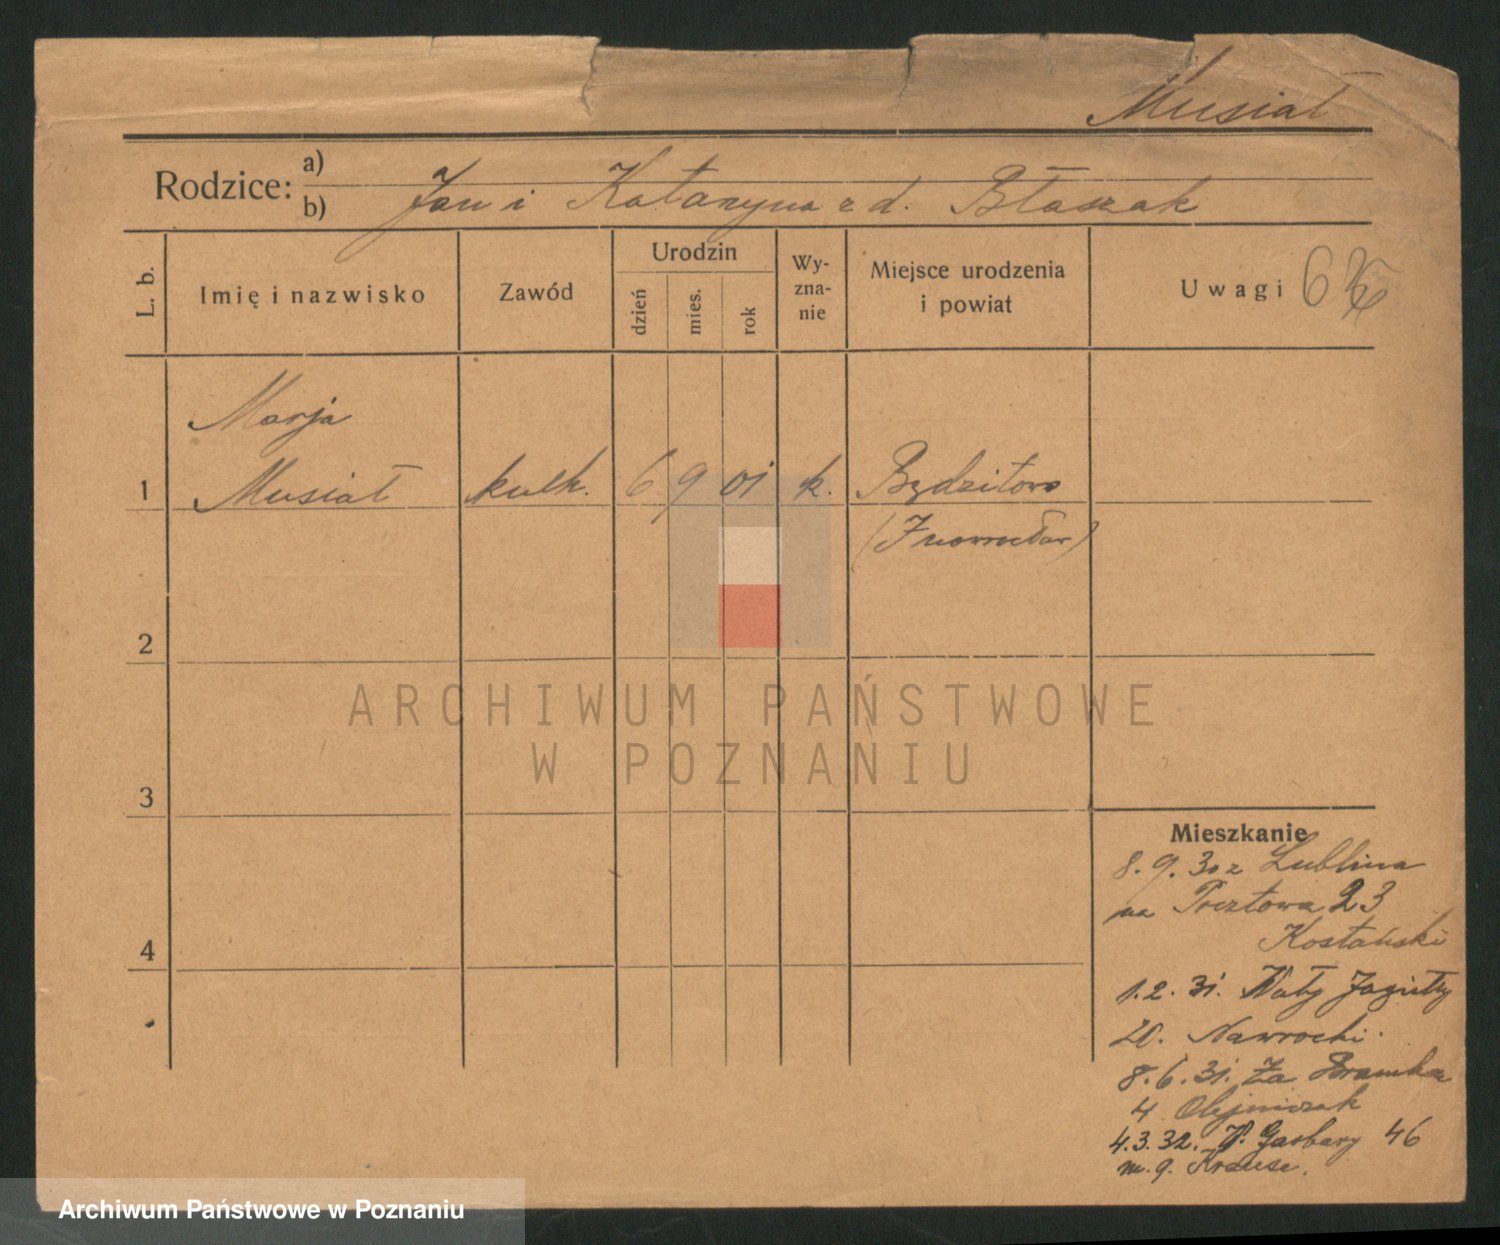 Musiał
Rodzice:
a)
b)
Jan i Katarzyna z d. Błaszak
L. b.
Imię i nazwisko
Zawód
Urodzin
dzień
mies.
rok
Wy-
zna-
nie
Miejsce urodzenia
i powiat
Uwagi
Marja
1 Musiał kuch. 6 9 01 k. Będzitowo
(Inowrocław)
2
3
4
ARCHIWUM PAŃSTWOWE
W POZNANIU
Mieszkanie
8. 9. 30 z Lublina
na Pocztowa 23
Kostański
1. 2. 31. Wały Jagiełły
20. Nawrocki.
8. 6. 31. Za Bramką
4 Olejniczak
4. 3. 32. W. Garbary 46
m. 9. Krause.
Archiwum Państwowe w Poznaniu